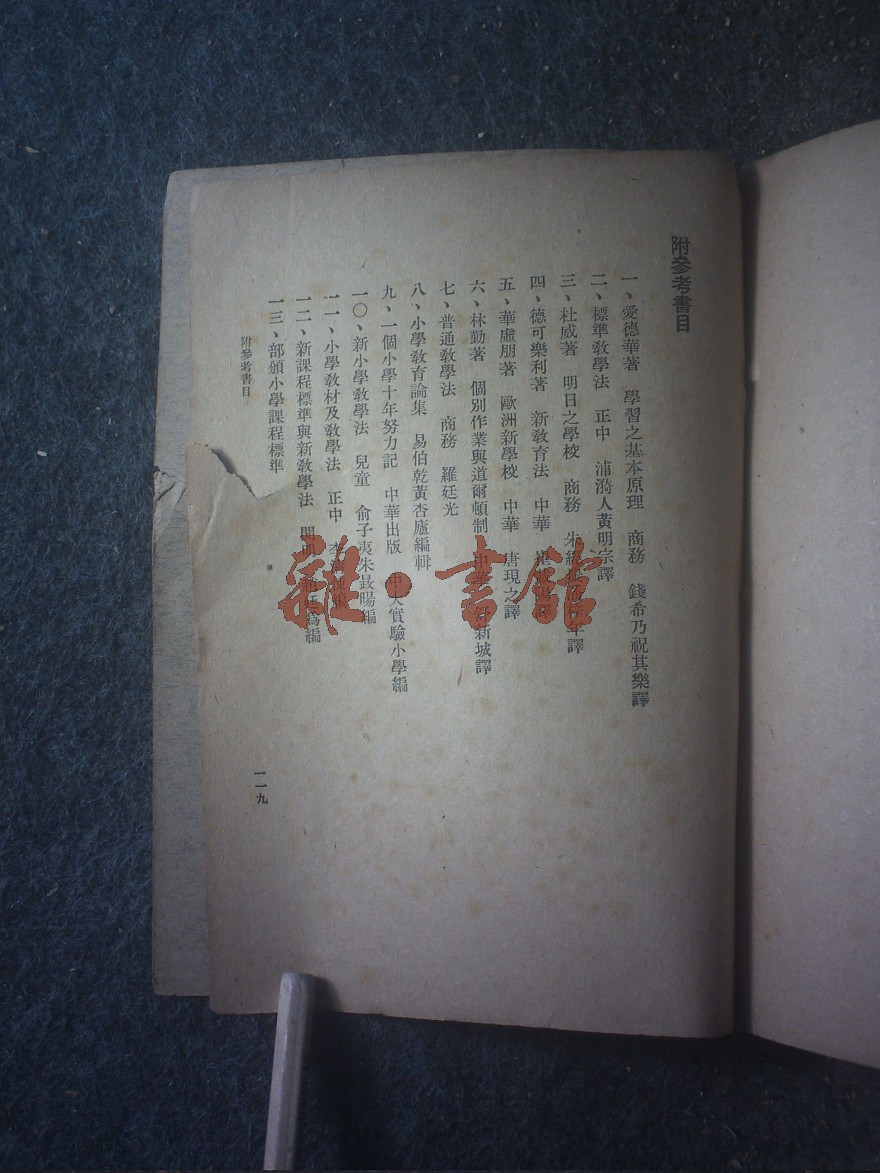 附參考書目
一、愛德華著 學習之基本原理 商務 錢希乃祝其樂譯
二、標準教學法 正中 浦漪人黃明宗譯
三、杜威著 明日之學校 商務 朱經 年譯
四、德可樂利著 新敎育法 中華 譯
五、華虛朋著 歐洲新學校 中華 唐現之譯
六、林勤著 個別作業與道爾頓制 中華 新城譯
七、普通敎學法 商務 羅廷光
八、小學敎育論集 易伯乾黃杏廬編輯
九、一個小學十年努力記 中華出版 中大實驗小學編
一〇、新小學敎學法 兒童 俞子夷朱晸暘編
一一、小學敎材及敎學法 正中 編
一二、新課程標準與新敎學法 開明 編
一三、部頒小學課程標準
附參考書目
一一九
雜·書館